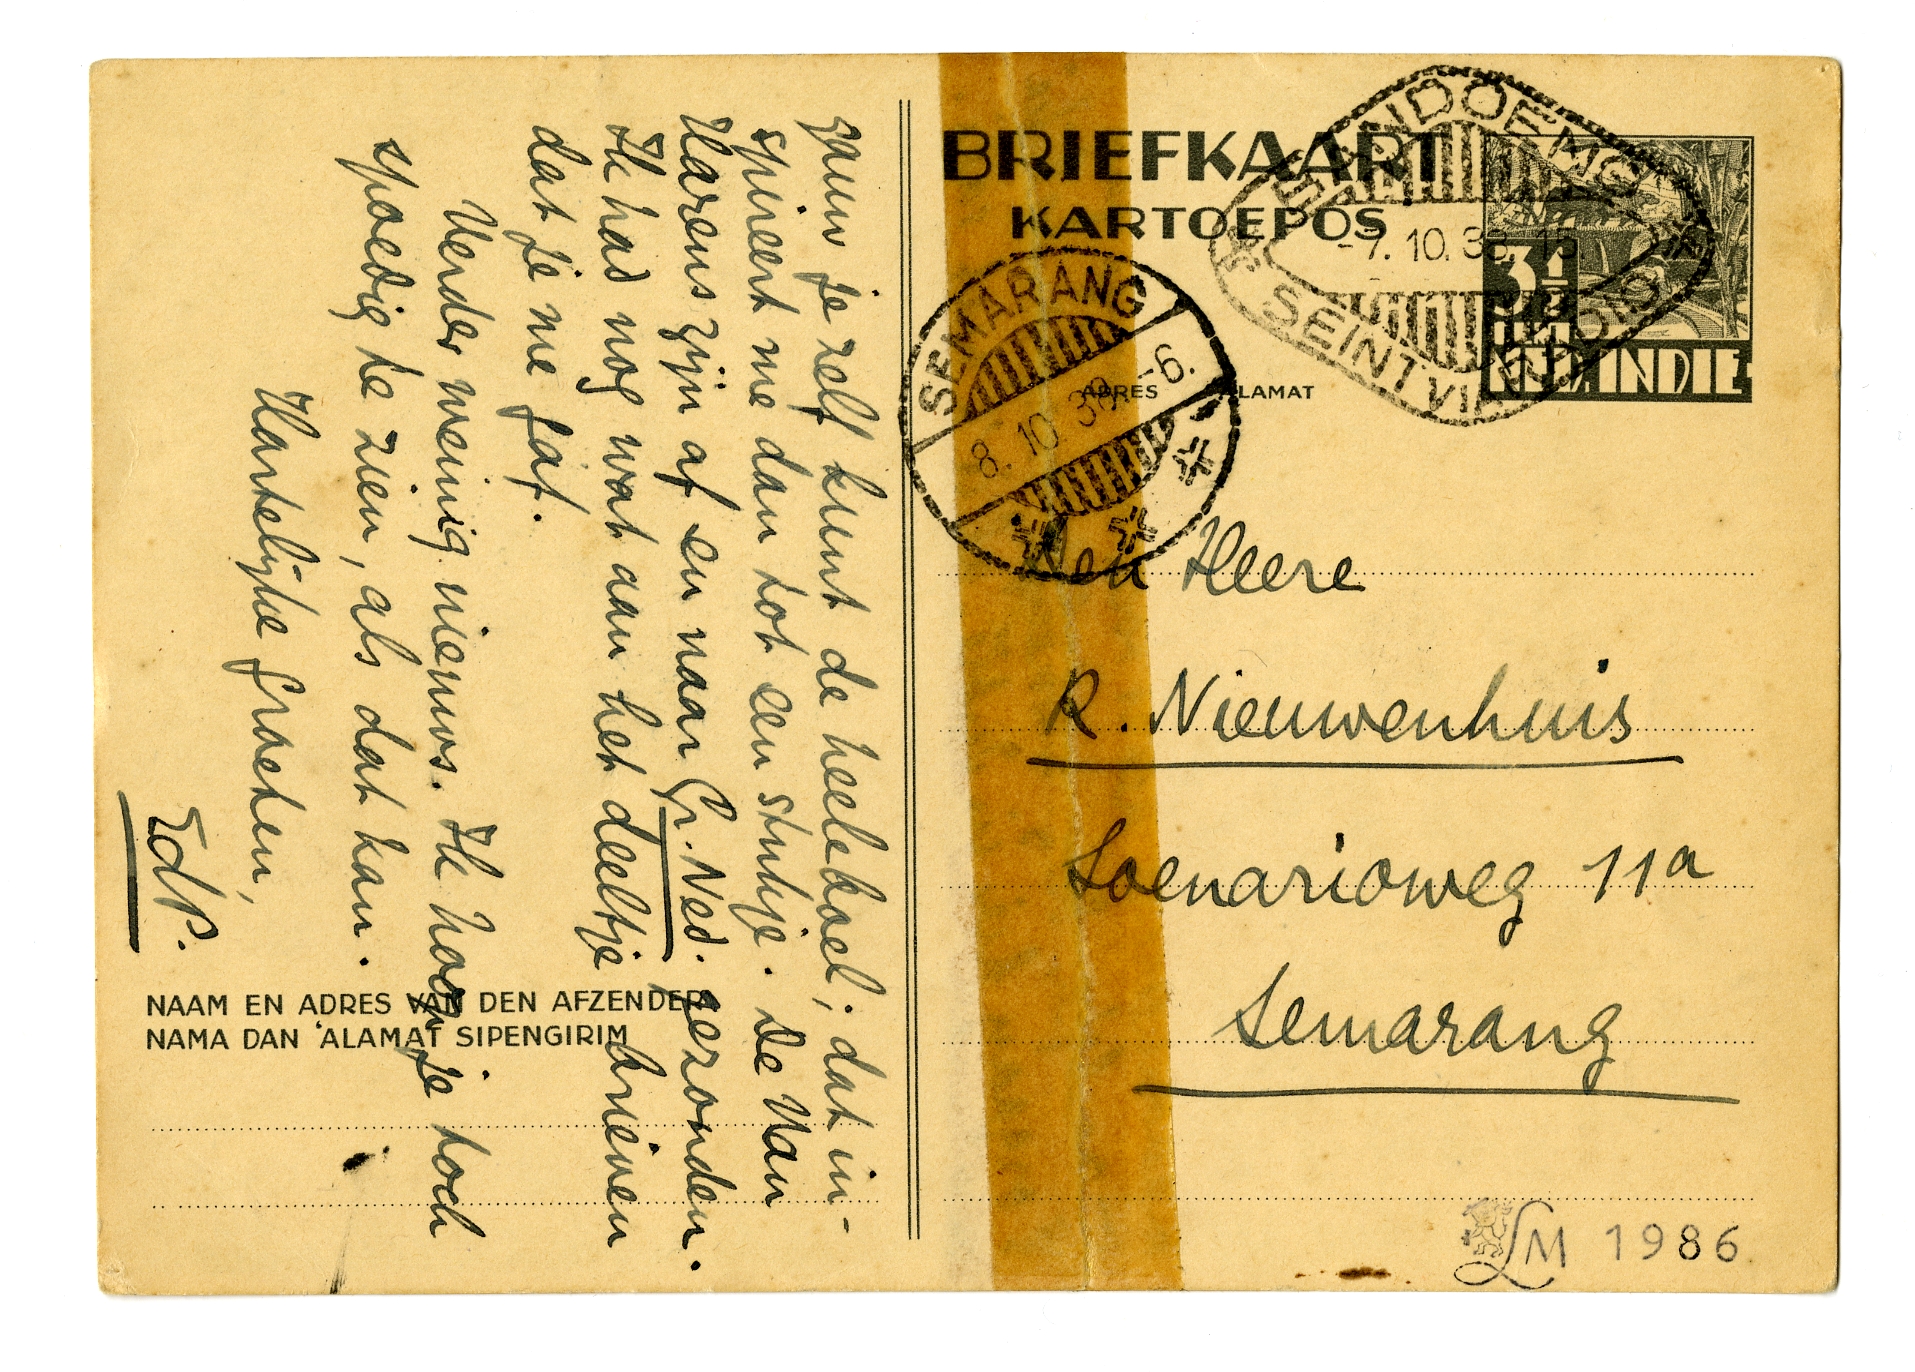 BRIEFKAART
KARTOEPOS
BANDOEMG
-7. 10. 38. 15
SEINT VIA RADIO
3½
NED. INDIE
SEMARANG
8. 10. 38. -6.
ADRES ALAMAT
Den Heere
R. Nieuwenhuis
Soenarioweg 11a
Semarang
LM 1986
je zelf kunt de heeleboel; dat in-
spireert me dan tot een stukje. De Van
Harens zijn af en naar Gr. Ned. gezonden.
Ik had nog wat aan het deeltje brieven
dat je me gaf.
Verder weinig nieuws. Ik hoop je toch
spoedig te zien, als dat kan.
Hartelijke groeten,
EdP.
NAAM EN ADRES VAN DEN AFZENDER
NAMA DAN 'ALAMAT SIPENGIRIM